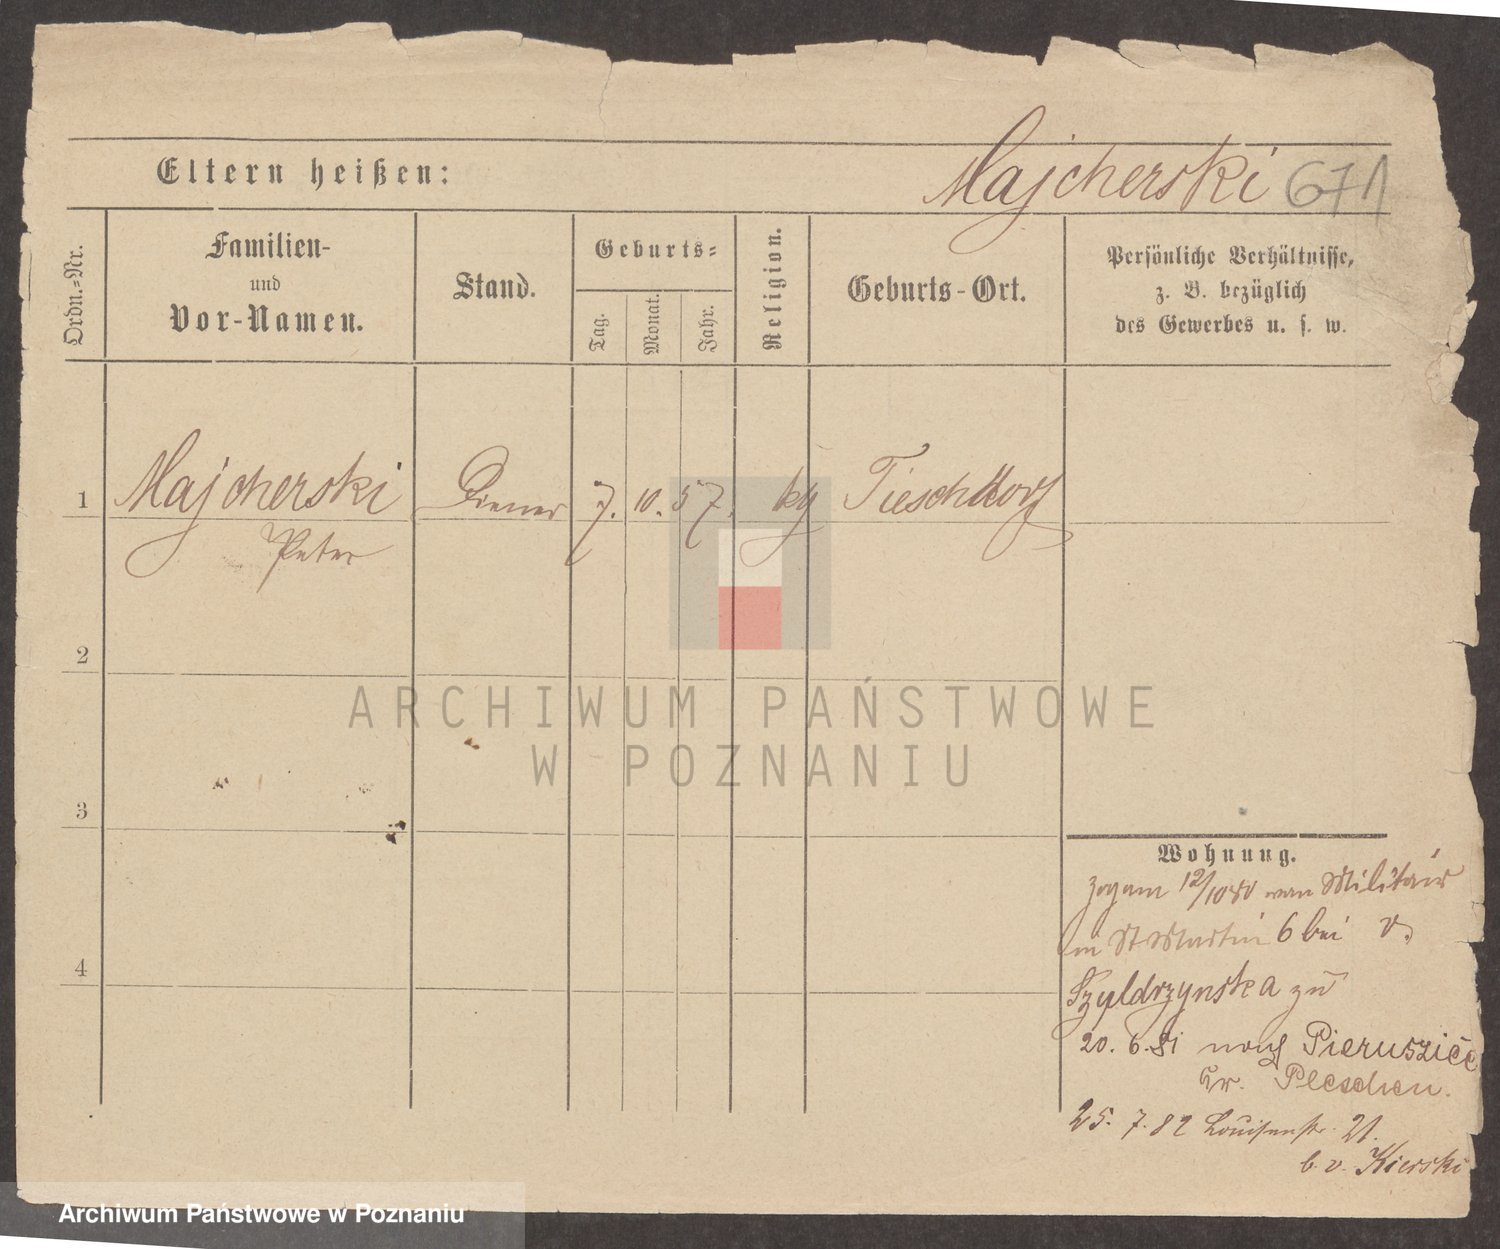 Eltern heißen:
Majcherski 671
Ordn.=Nr.
Familien-
und
Vor-Namen.
Stand.
Geburts=
Tag.
Monat.
Jahr.
Religion.
Geburts-Ort.
Persönliche Verhältnisse,
z. B. bezüglich
des Gewerbes u. s. w.
1 Majcherski Diener 7. 10. 57. Tieschdorf
Peter
2
3
4
ARCHIWUM PAŃSTWOWE
W POZNANIU
Wohnung.
zog am 12/10 80 vom Militair
in St Martin 6 bei v.
Szyldrzynska zu
20. 6. 81 nach Pieruszice
Kr. Pleschen.
25. 7. 82 Louisenstr. 21.
b. v. Kierski
Archiwum Państwowe w Poznaniu